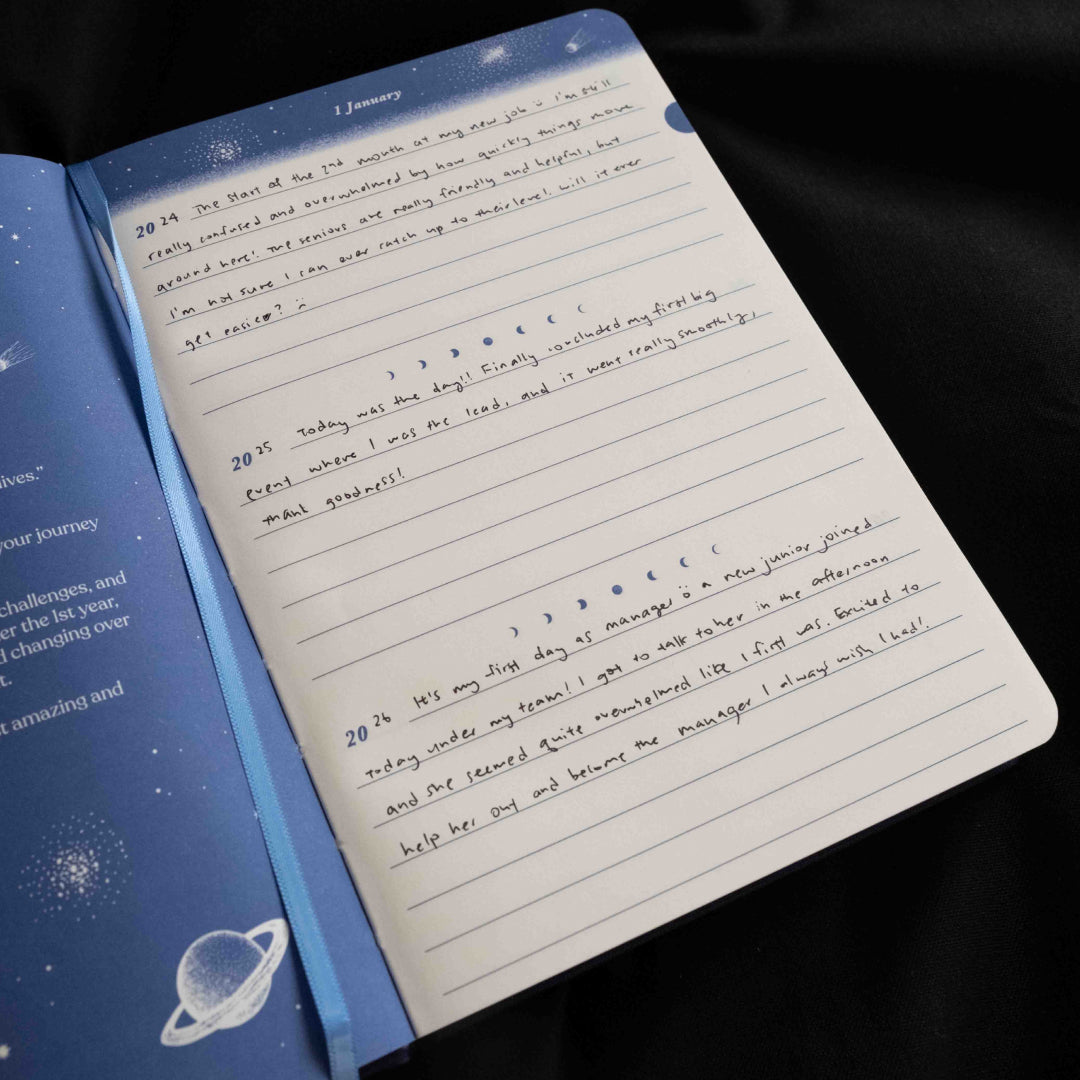 ives."
our journey
challenges, and
er the 1st year,
d changing over
t.
t amazing and
1 January
2024 The start of the 2nd month at my new job I'm still
really confused and overwhelmed by how quickly things move
around here! The seniors are really friendly and helpful, but
I'm not sure I can ever catch up to their level! Will it ever
get easier?
2025 Today was the day!! Finally concluded my first big
event where I was the lead, and it went really smoothly,
thank goodness!
2026 It's my first day as manager a new junior joined
today under my team! I got to talk to her in the afternoon
and she seemed quite overwhelmed like I first was. Excited to
help her out and become the manager I always wish I had!